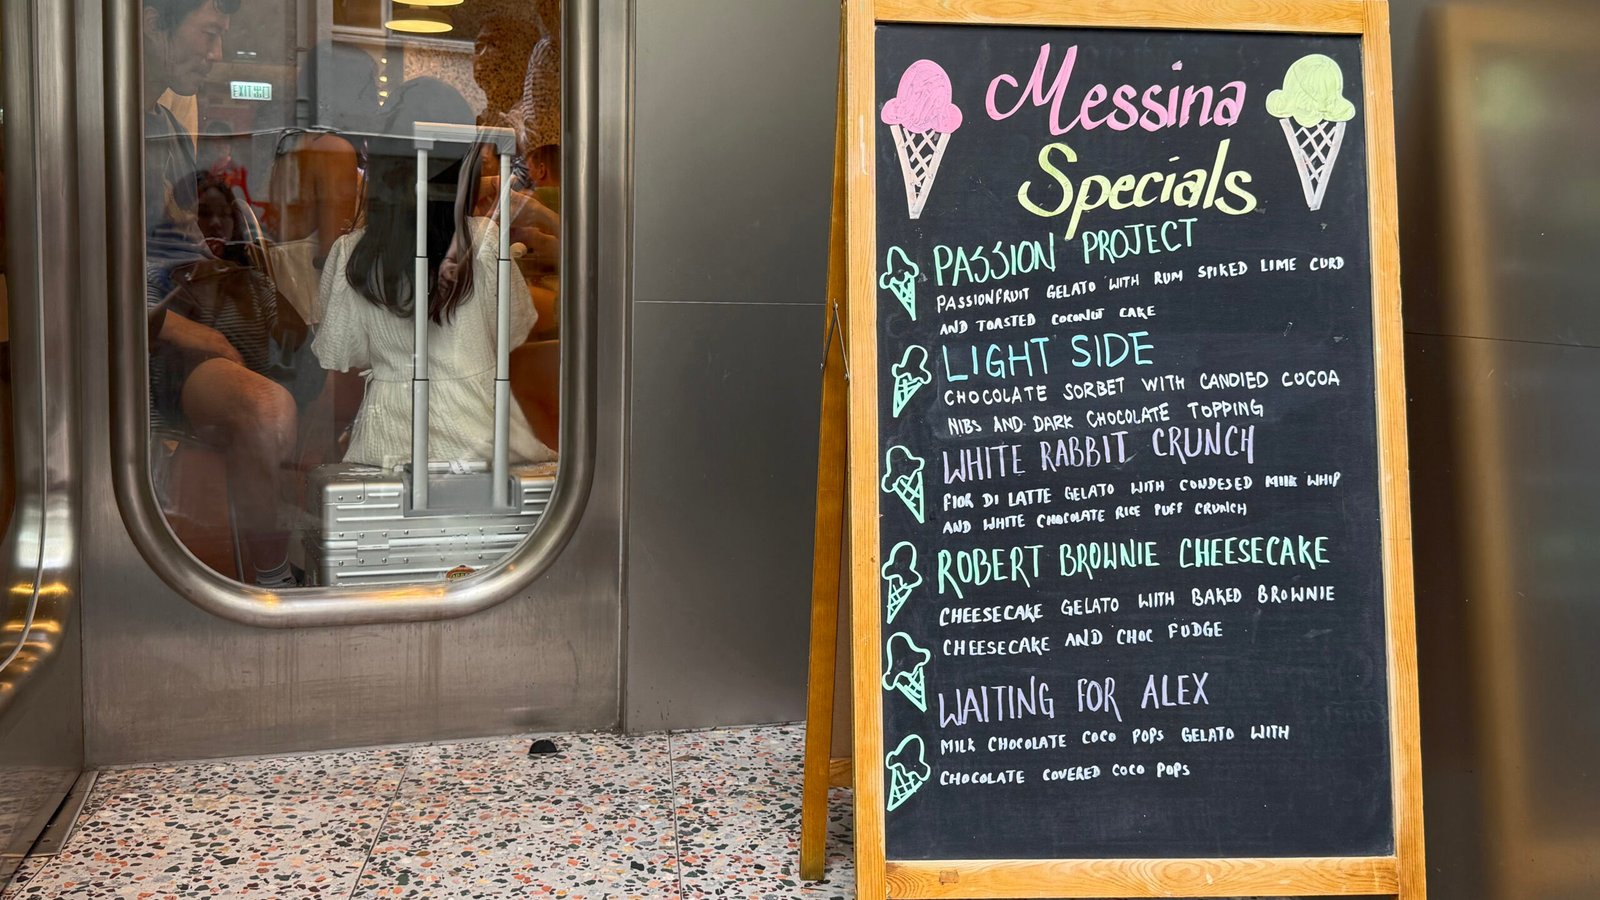 EXIT 出口
Messina
Specials
PASSION PROJECT
PASSIONFRUIT GELATO WITH RUM SPIKED LIME CURD
AND TOASTED COCONUT CAKE
LIGHT SIDE
CHOCOLATE SORBET WITH CANDIED COCOA
NIBS AND DARK CHOCOLATE TOPPING
WHITE RABBIT CRUNCH
FIOR DI LATTE GELATO WITH CONDESED MILK WHIP
AND WHITE CHOCOLATE RICE PUFF CRUNCH
ROBERT BROWNIE CHEESECAKE
CHEESECAKE GELATO WITH BAKED BROWNIE
CHEESECAKE AND CHOC FUDGE
WAITING FOR ALEX
MILK CHOCOLATE COCO POPS GELATO WITH
CHOCOLATE COVERED COCO POPS